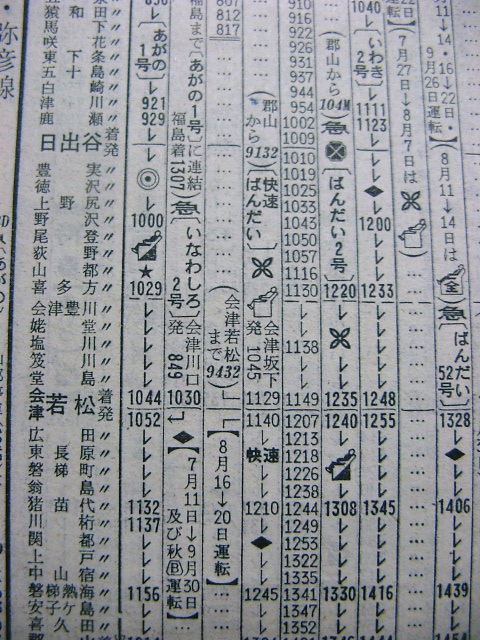 弥彦線
猿和田
馬下
咲花
東下条
五十島
白崎
津川
鹿瀬
日出谷
着発
豊実
徳沢
上野尻
野沢
尾登
荻野
山都
喜多方
会津豊川
姥堂
塩川
笈川
堂島
会津若松
着発
広田
東長原
磐梯町
翁島
猪苗代
川桁
関都
上戸
中山宿
磐梯熱海
安子ケ島
喜久田
あがの1号
921
929
1000
1029
1044
1052
1132
1137
1156
福島まで
(あがの1号)に連結
福島着1307
急
いなわしろ2号
会津川口発849
1030
[7月11日→9月30日及び秋Ⓑ運転]
812
817
(会津若松まで9432)
[8月16→20日運転]
(郡山から9132)
快速
ばんだい
会津坂下発1045
1129
1140
快速
1210
1245
910
916
922
926
931
937
944
954
1002
1009
1010
1019
1025
1033
1043
1050
1057
1116
1130
1138
1149
1207
1213
1218
1226
1238
1244
1249
1253
1322
1335
1341
1347
1352
(郡山から104M)
急
ばんだい2号
1220
1235
1240
1308
1330
1040
いわき2号
1111
1123
1200
1233
1248
1255
1345
1416
7月27日→8月7日は
8月11→14
9月16→22日・
9月26日運転
(8月11→14日は全)
急
ばんだい52号
1328
1406
1439